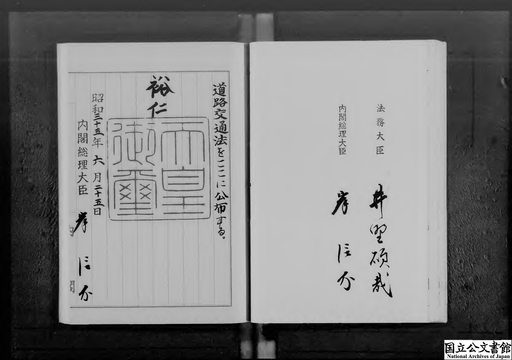 道路交通法をここに公布する。
裕仁
天皇
御璽
昭和三十五年六月二十五日
内閣総理大臣 岸信介
法務大臣 井野碩哉
内閣総理大臣 岸信介
国立公文書館
National Archives of Japan